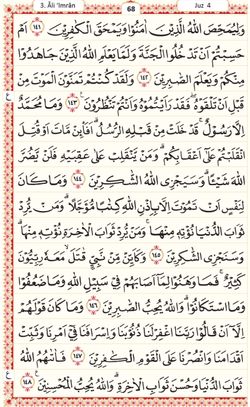 3. Âli 'Imrân 68 Juz 4
وَلِيُمَحِّصَ اللّٰهُ الَّذِيْنَ اٰمَنُوْا وَيَمْحَقَ الْكٰفِرِيْنَ ١٤١ اَمْ
حَسِبْتُمْ اَنْ تَدْخُلُوا الْجَنَّةَ وَلَمَّا يَعْلَمِ اللّٰهُ الَّذِيْنَ جَاهَدُوْا
مِنْكُمْ وَيَعْلَمَ الصّٰبِرِيْنَ ١٤٢ وَلَقَدْ كُنْتُمْ تَمَنَّوْنَ الْمَوْتَ مِنْ
قَبْلِ اَنْ تَلْقَوْهُۖ فَقَدْ رَاَيْتُمُوْهُ وَاَنْتُمْ تَنْظُرُوْنَ ١٤٣ وَمَا مُحَمَّدٌ
اِلَّا رَسُوْلٌۚ قَدْ خَلَتْ مِنْ قَبْلِهِ الرُّسُلُۗ اَفَا۟ىِٕنْ مَّاتَ اَوْ قُتِلَ
انْقَلَبْتُمْ عَلٰٓى اَعْقَابِكُمْۗ وَمَنْ يَّنْقَلِبْ عَلٰى عَقِبَيْهِ فَلَنْ يَّضُرَّ
اللّٰهَ شَيْـًٔاۗ وَسَيَجْزِى اللّٰهُ الشّٰكِرِيْنَ ١٤٤ وَمَا كَانَ
لِنَفْسٍ اَنْ تَمُوْتَ اِلَّا بِاِذْنِ اللّٰهِ كِتٰبًا مُّؤَجَّلًاۗ وَمَنْ يُّرِدْ
ثَوَابَ الدُّنْيَا نُؤْتِهٖ مِنْهَاۚ وَمَنْ يُّرِدْ ثَوَابَ الْاٰخِرَةِ نُؤْتِهٖ مِنْهَاۗ
وَسَنَجْزِى الشّٰكِرِيْنَ ١٤٥ وَكَاَيِّنْ مِّنْ نَّبِيٍّ قٰتَلَۙ مَعَهٗ رِبِّيُّوْنَ
كَثِيْرٌۚ فَمَا وَهَنُوْا لِمَآ اَصَابَهُمْ فِيْ سَبِيْلِ اللّٰهِ وَمَا ضَعُفُوْا
وَمَا اسْتَكَانُوْاۗ وَاللّٰهُ يُحِبُّ الصّٰبِرِيْنَ ١٤٦ وَمَا كَانَ قَوْلَهُمْ
اِلَّآ اَنْ قَالُوْا رَبَّنَا اغْفِرْ لَنَا ذُنُوْبَنَا وَاِسْرَافَنَا فِيْٓ اَمْرِنَا وَثَبِّتْ
اَقْدَامَنَا وَانْصُرْنَا عَلَى الْقَوْمِ الْكٰفِرِيْنَ ١٤٧ فَاٰتٰىهُمُ اللّٰهُ
ثَوَابَ الدُّنْيَا وَحُسْنَ ثَوَابِ الْاٰخِرَةِۗ وَاللّٰهُ يُحِبُّ الْمُحْسِنِيْنَ ١٤٨